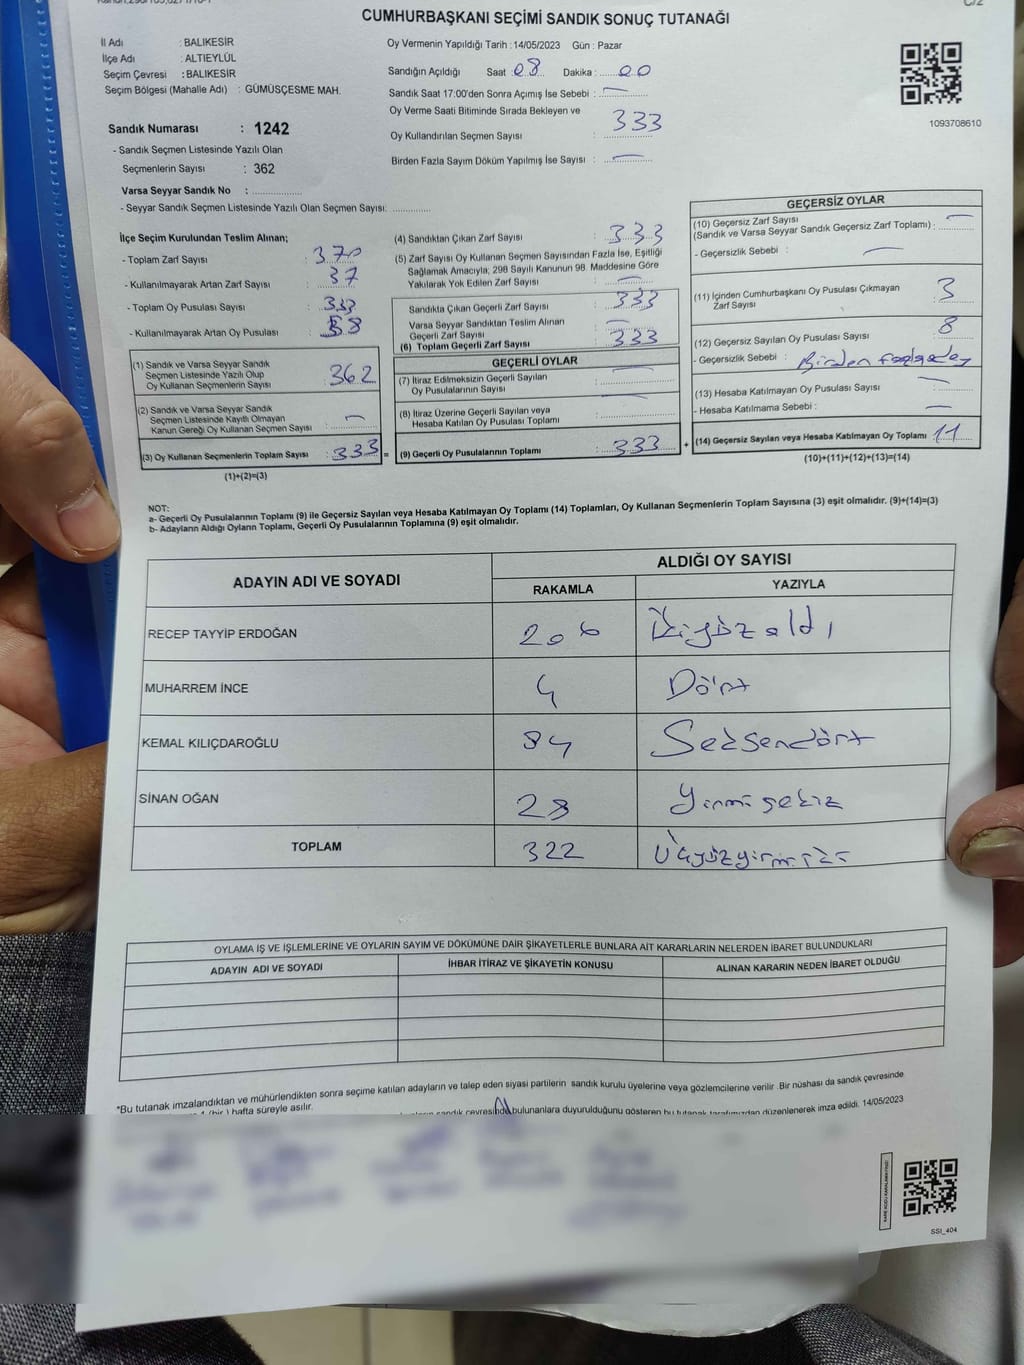 CUMHURBAŞKANI SEÇİMİ SANDIK SONUÇ TUTANAĞI
C/2
İl Adı : BALIKESİR
İlçe Adı : ALTIEYLÜL
Seçim Çevresi : BALIKESİR
Seçim Bölgesi (Mahalle Adı) : GÜMÜŞÇEŞME MAH.
Sandık Numarası : 1242
- Sandık Seçmen Listesinde Yazılı Olan
Seçmenlerin Sayısı : 362
Varsa Seyyar Sandık No : ..............
- Seyyar Sandık Seçmen Listesinde Yazılı Olan Seçmen Sayısı: ............
Oy Vermenin Yapıldığı Tarih : 14/05/2023 Gün : Pazar
Sandığın Açıldığı Saat 08 Dakika : 00
Sandık Saat 17:00'den Sonra Açımış İse Sebebi : —
Oy Verme Saati Bitiminde Sırada Bekleyen ve
Oy Kullandırılan Seçmen Sayısı : 333
Birden Fazla Sayım Döküm Yapılmış İse Sayısı : —
1093708610
İlçe Seçim Kurulundan Teslim Alınan;
- Toplam Zarf Sayısı : 370
- Kullanılmayarak Artan Zarf Sayısı : 37
- Toplam Oy Pusulası Sayısı : 333
- Kullanılmayarak Artan Oy Pusulası : 38
(1) Sandık ve Varsa Seyyar Sandık
Seçmen Listesinde Yazılı Olup
Oy Kullanan Seçmenlerin Sayısı : 362
(2) Sandık ve Varsa Seyyar Sandık
Seçmen Listesinde Kayıtlı Olmayan
Kanun Gereği Oy Kullanan Seçmen Sayısı : —
(3) Oy Kullanan Seçmenlerin Toplam Sayısı : 333 =
(1)+(2)=(3)
(4) Sandıktan Çıkan Zarf Sayısı : 333
(5) Zarf Sayısı Oy Kullanan Seçmen Sayısından Fazla İse, Eşitliği
Sağlamak Amacıyla; 298 Sayılı Kanunun 98. Maddesine Göre
Yakılarak Yok Edilen Zarf Sayısı : —
Sandıkta Çıkan Geçerli Zarf Sayısı : 333
Varsa Seyyar Sandıktan Teslim Alınan
Geçerli Zarf Sayısı : —
(6) Toplam Geçerli Zarf Sayısı : 333
GEÇERLİ OYLAR
(7) İtiraz Edilmeksizin Geçerli Sayılan
Oy Pusulalarının Sayısı : —
(8) İtiraz Üzerine Geçerli Sayılan veya
Hesaba Katılan Oy Pusulası Toplamı : —
(9) Geçerli Oy Pusulalarının Toplamı : 333 +
GEÇERSİZ OYLAR
(10) Geçersiz Zarf Sayısı
(Sandık ve Varsa Seyyar Sandık Geçersiz Zarf Toplamı) : —
- Geçersizlik Sebebi : —
(11) İçinden Cumhurbaşkanı Oy Pusulası Çıkmayan
Zarf Sayısı : 3
(12) Geçersiz Sayılan Oy Pusulası Sayısı : 8
- Geçersizlik Sebebi : Birden fazla oy
(13) Hesaba Katılmayan Oy Pusulası Sayısı : —
- Hesaba Katılmama Sebebi : —
(14) Geçersiz Sayılan veya Hesaba Katılmayan Oy Toplamı 11
(10)+(11)+(12)+(13)=(14)
NOT:
a- Geçerli Oy Pusulalarının Toplamı (9) ile Geçersiz Sayılan veya Hesaba Katılmayan Oy Toplamı (14) Toplamları, Oy Kullanan Seçmenlerin Toplam Sayısına (3) eşit olmalıdır. (9)+(14)=(3)
b- Adayların Aldığı Oyların Toplamı, Geçerli Oy Pusulalarının Toplamına (9) eşit olmalıdır.
ADAYIN ADI VE SOYADI
ALDIĞI OY SAYISI
RAKAMLA YAZIYLA
RECEP TAYYİP ERDOĞAN 206 İkiyüzaltı
MUHARREM İNCE 4 Dört
KEMAL KILIÇDAROĞLU 84 Seksendört
SİNAN OĞAN 28 Yirmisekiz
TOPLAM 322 Üçyüzyirmiiki
OYLAMA İŞ VE İŞLEMLERİNE VE OYLARIN SAYIM VE DÖKÜMÜNE DAİR ŞİKAYETLERLE BUNLARA AİT KARARLARIN NELERDEN İBARET BULUNDUKLARI
ADAYIN ADI VE SOYADI İHBAR İTİRAZ VE ŞİKAYETİN KONUSU ALINAN KARARIN NEDEN İBARET OLDUĞU
*Bu tutanak imzalandıktan ve mühürlendikten sonra seçime katılan adayların ve talep eden siyasi partilerin sandık kurulu üyelerine veya gözlemcilerine verilir. Bir nüshası da sandık çevresinde
1 (bir) hafta süreyle asılır.
sandık çevresinde bulunanlara duyurulduğunu gösteren bu tutanak tarafımızdan düzenlenerek imza edildi. 14/05/2023
SSI_404